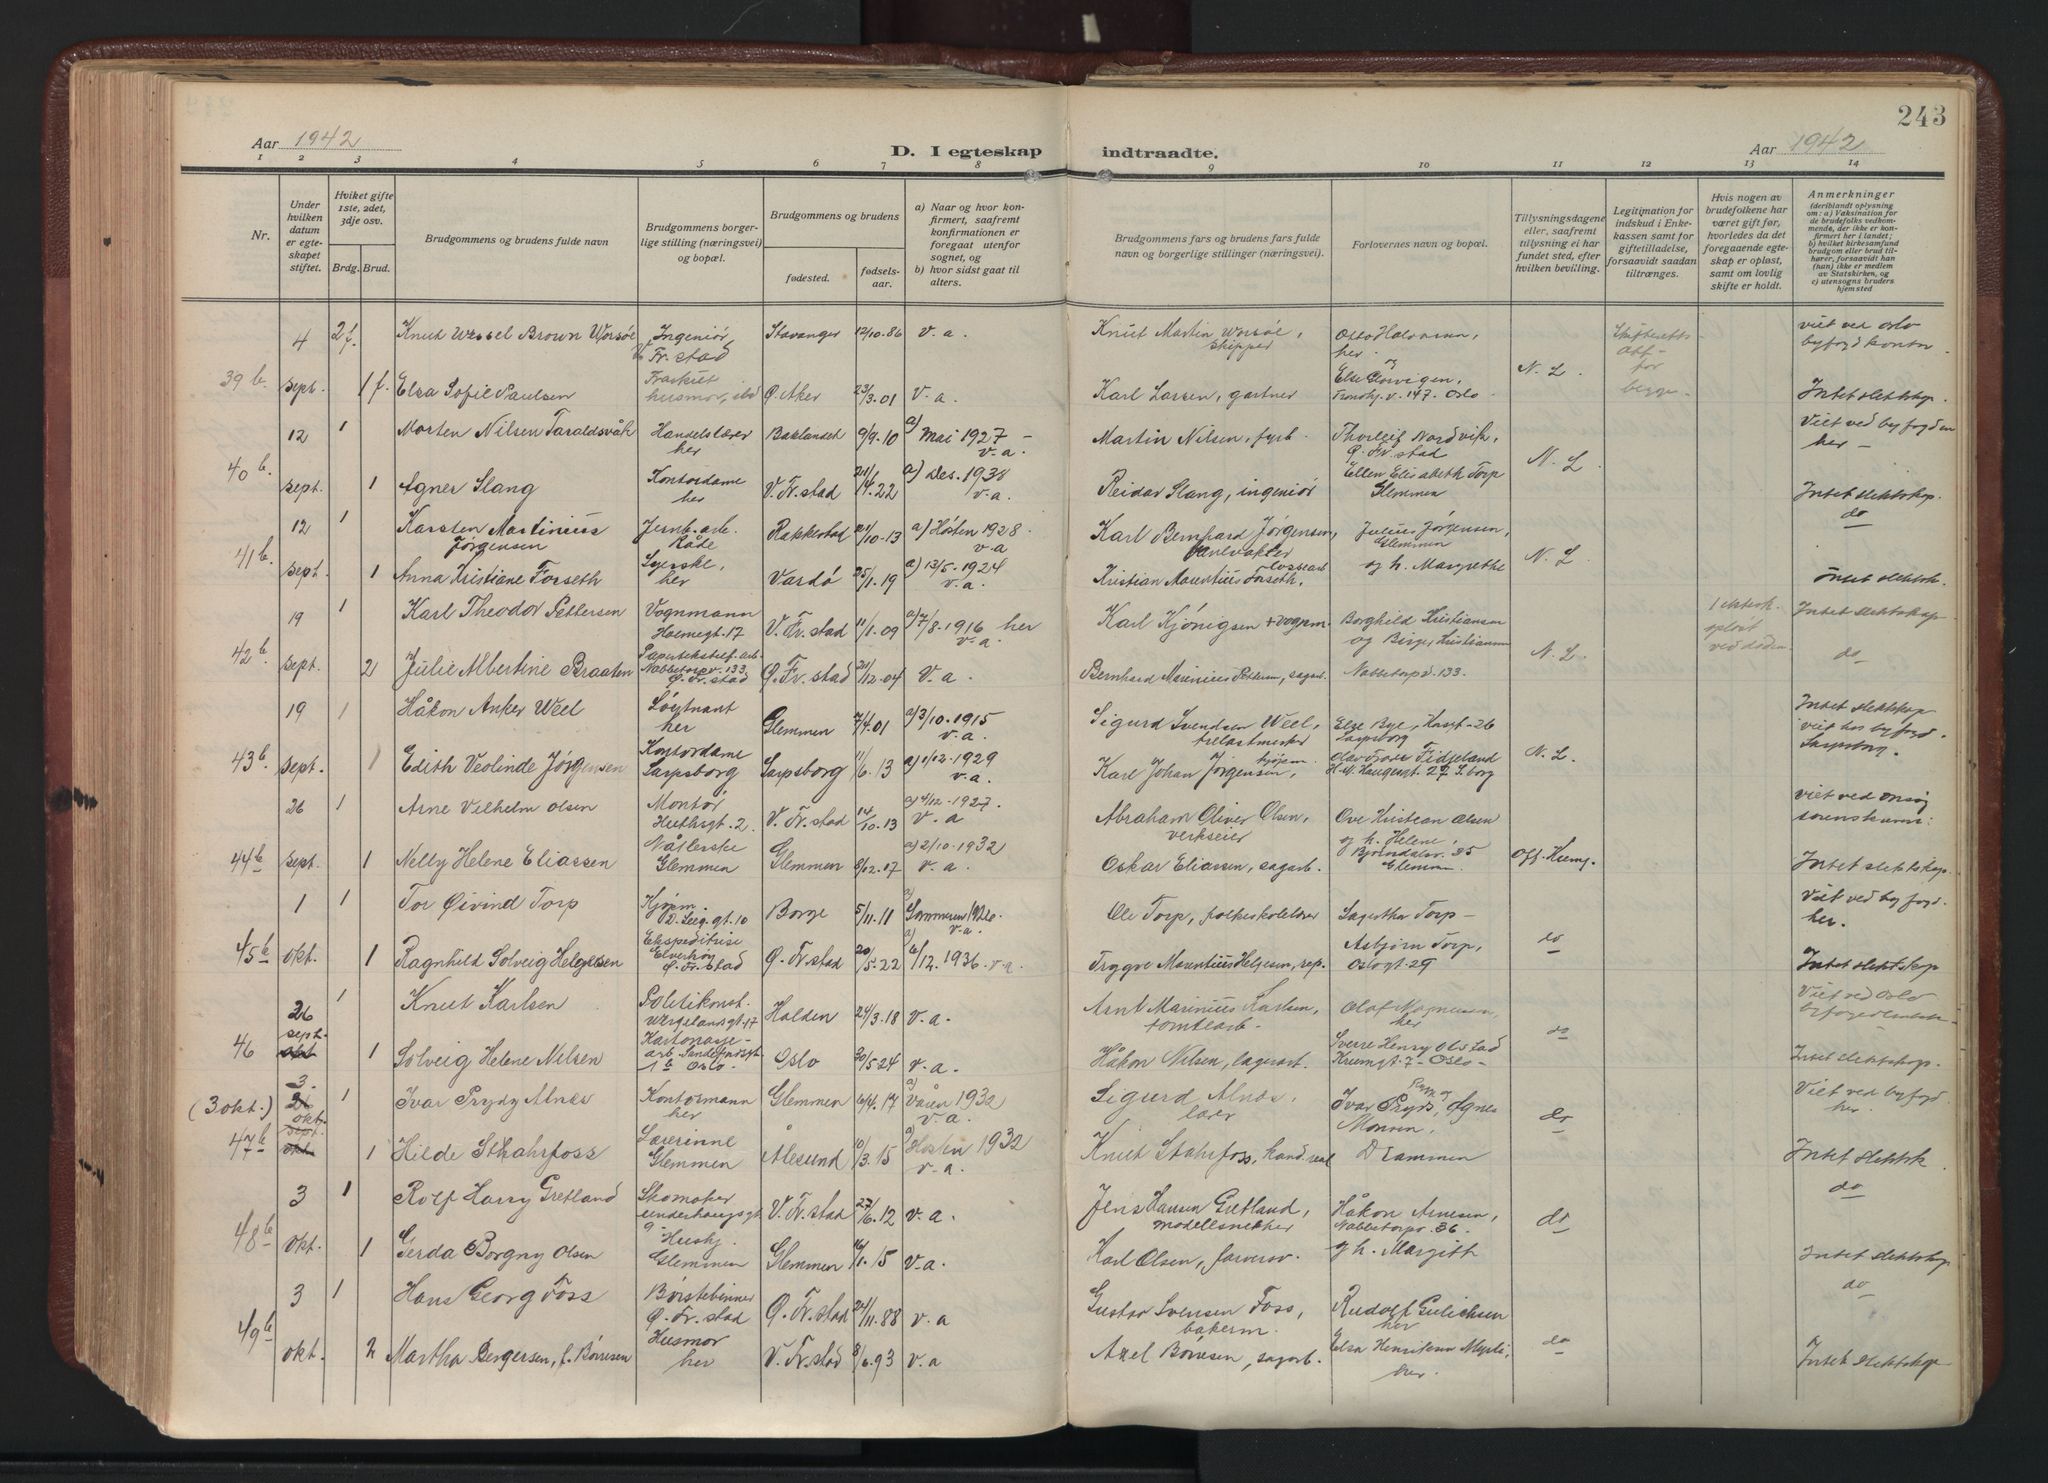 243
Aar 1942
D. I egteskap
indtraadte.
Aar 1942
1 2 3 4 5 6 7 8 9 10 11 12 13 14
Nr.
Under hvilken datum er egteskapet stiftet.
Hviket gifte 1ste, 2det, 3dje osv.
Brdg. Brud.
Brudgommens og brudens fulde navn
Brudgommens borgerlige stilling (næringsvei) og bopæl.
Brudgommens og brudens
fødested.
fødselsaar.
a) Naar og hvor konfirmert, saafremt konfirmationen er foregaat utenfor sognet, og
b) hvor sidst gaat til alters.
Brudgommens fars og brudens fars fulde navn og borgerlige stillinger (næringsvei).
Forlovernes navn og bopæl.
Tillysningsdagene eller, saafremt tillysning ei har fundet sted, efter hvilken bevilling.
Legitimation for indskud i Enkekassen samt for giftetilladelse, forsaavidt saadan tiltrænges.
Hvis nogen av brudefolkene har været gift før, hvorledes da det foregaaende egteskap er opløst, samt om lovlig skifte er holdt.
Anmerkninger
(deriblandt oplysning om: a) Vaksination for de brudefolks vedkommende, der ikke er konfirmert her i landet; b) hvilket kirkesamfund brudgom eller brud tilhører, forsaavidt han (hun) ikke er medlem av Statskirken, og c) utensogns bruders hjemsted
4 2 f. Knut Wessel Brown Worsøe Ingeniør, Fr.stad Stavanger 12/10.86 v. a. Knut Martin Worsøe, skipper her og viet ved Oslo byfogdkontor
39 b. sept. 1 f. Elsa Sofie Paulsen husmor, Ø. Aker 23/3.01 v. a. Karl Larsen, gartner Else Trondhj. v. 147. Oslo N. L. Skifteretts att for begge. Intet slektskap.
12 1 Morten Nilsen Taraldsvåk Handelslærer her Baklandet 9/9.10 a) Mai 1927 - v. a. Martin Nilsen, fyrb. Thorleif Nordvik, Ø. Fr.stad Viet ved byfogden her -
40 b. sept. 1 Agner Slang Kontordame her V. Fr.stad 21/4.22 a) Des. 1938 v. a. Reidar Slang, ingeniør Ellen Elisabeth Torp Glemmen N. L. Intet slektskap.
12 1 Karsten Martinius Jørgensen Jernb.arb. Råde Rakkestad 21/10.13 a) Høsten 1928. v. a Karl Bernhard Jørgensen, Julius Jørgensen, Glemmen do
41 b. sept. 1 Anna Kristiane Forseth Syerske, her Vardø 25/1.19 a) 13/5.1924 v. a. Kristian Mauritius Forseth, lossearb og h. Margrethe N. L. Intet slektsk.
19 1 Karl Theodor Pettersen Vognmann Holmegt. 17 V. Fr.stad 11/1.09 a) 7/8.1916 her v. a. Karl Kjønigsen + vognm. Borghild Kristiansen og Birger Kristiansen 1 ektesk. opløst ved døden Intet slektskap
42 b. sept. 2 Julie Albertine Braaten Nabbetorpv. 133 Ø. Fr.stad Ø. Fr. stad 21/12.04 v. a. Bernhard Marinius Pettersen, sagarb. Nabbetorpv. 133. N. L. do
19 1 Håkon Anker Weel Løytnant her Glemmen 7/4.01 a) 3/10.1915 v. a. Sigurd Svendsen Weel, trelastmerker Else Bye, Sarpsborg Intet slektskap viet hos byfogd. Sarpsborg.
43 b. sept. 1 Edith Veolinde Jørgensen Kontordame Sarpsborg Sarpsborg 11/6.13 a) 1/12.1929 v. a. Karl Johan Jørgensen, kjøpm. Olav Fidjeland H. N. Haugesgt. 27 S.borg N. L.
26 1 Arne Vilhelm Olsen Montør Huthsgt. 2. V. Fr.stad 14/10.13 a) 4/12.1927. v. a Abraham Oliver Olsen, verkseier Ove Kristian Olsen og h. Helene viet ved Onsøy sorenskriv:
44 b sept. 1 Nelly Helene Eliassen Glemmen Glemmen 8/12.17 a) 2/10.1932 v. a. Oskar Eliassen, sagarb. Bjørndalsv. 35 Glemmen Off. Kunng. Intet slektskap.
1 1 Tor Øivind Torp Kjøpm. Borge 5/11.11 a) Sommeren v. a. Ole Torp, folkeskolelærer Sagertha Torp - Viet ved byfogd. her.
45 b okt. 1 Ragnhild Solveig Helgesen Ekspeditrise Elverhøy Ø. Fr.stad Ø. Fr.stad 20/5.22 a) 6/12.1936. v. a. Trygve Mauritius Helgesen, rep. Asbjørn Torp, Oslogt. 29 do Intet slektskap
26 1 Knut Karlsen Politikonst. Wergelandsgt. 17 Halden 24/3.18 v. a. Arnt Marinius Karlsen, tomtearb. Olaf Magnussen, her Viet ved Oslo
46 sept. okt 1 Solveig Helene Nilsen Kartonasjearb. Sandefjordsgt 1 b Oslo. Oslo 30/5.24 v. a. Håkon Nilsen, lagerarb. Sverre Henry Olstad Kruemgt. 7 - Oslo - do Intet slektskap.
(3 okt.) 3. 26 1 Ivar Prydz Alnæs Kontormann her Glemmen 6/4.17 a) Våren 1932 v. a. Sigurd Alnæs, lærer Ivar Prydz og Agnes Monsen, Viet ved byfogd. her
47 b okt. sept. okt 1 Hilde Stkahrfoss Lærerinne Glemmen Ålesund 10/3.15 a) Høsten 1932 v. a. Knut Stahrfoss, kand. real Drammen do Intet slektsk.
3 1 Rolf Harry Gretland Skomaker V. Fr.stad 27/6.12 v. a. Jens Hansen Gretland, modellsnekker Håkon Arnesen, Nabbetorpv. 36. do
48 b okt. 1 Gerda Borgny Olsen Hushj. Glemmen Glemmen 16/1.15 v. a. Karl Olsen, farverev. og h. Margith do Intet slektskap
3 1 Hans Georg Foss Børstebinner Ø. Fr. stad Ø. Fr.stad 24/11.88 v. a Gustav Svensen Foss, bakerm. Rudolf Gulichsen her do
49 b okt. 2 Martha Bergersen, f. Børresen Husmor her V. Fr.stad 8/6.93 v. a Axel Børresen, sagarb. Elsa Henriksen Myrli, her. do Intet slektskap